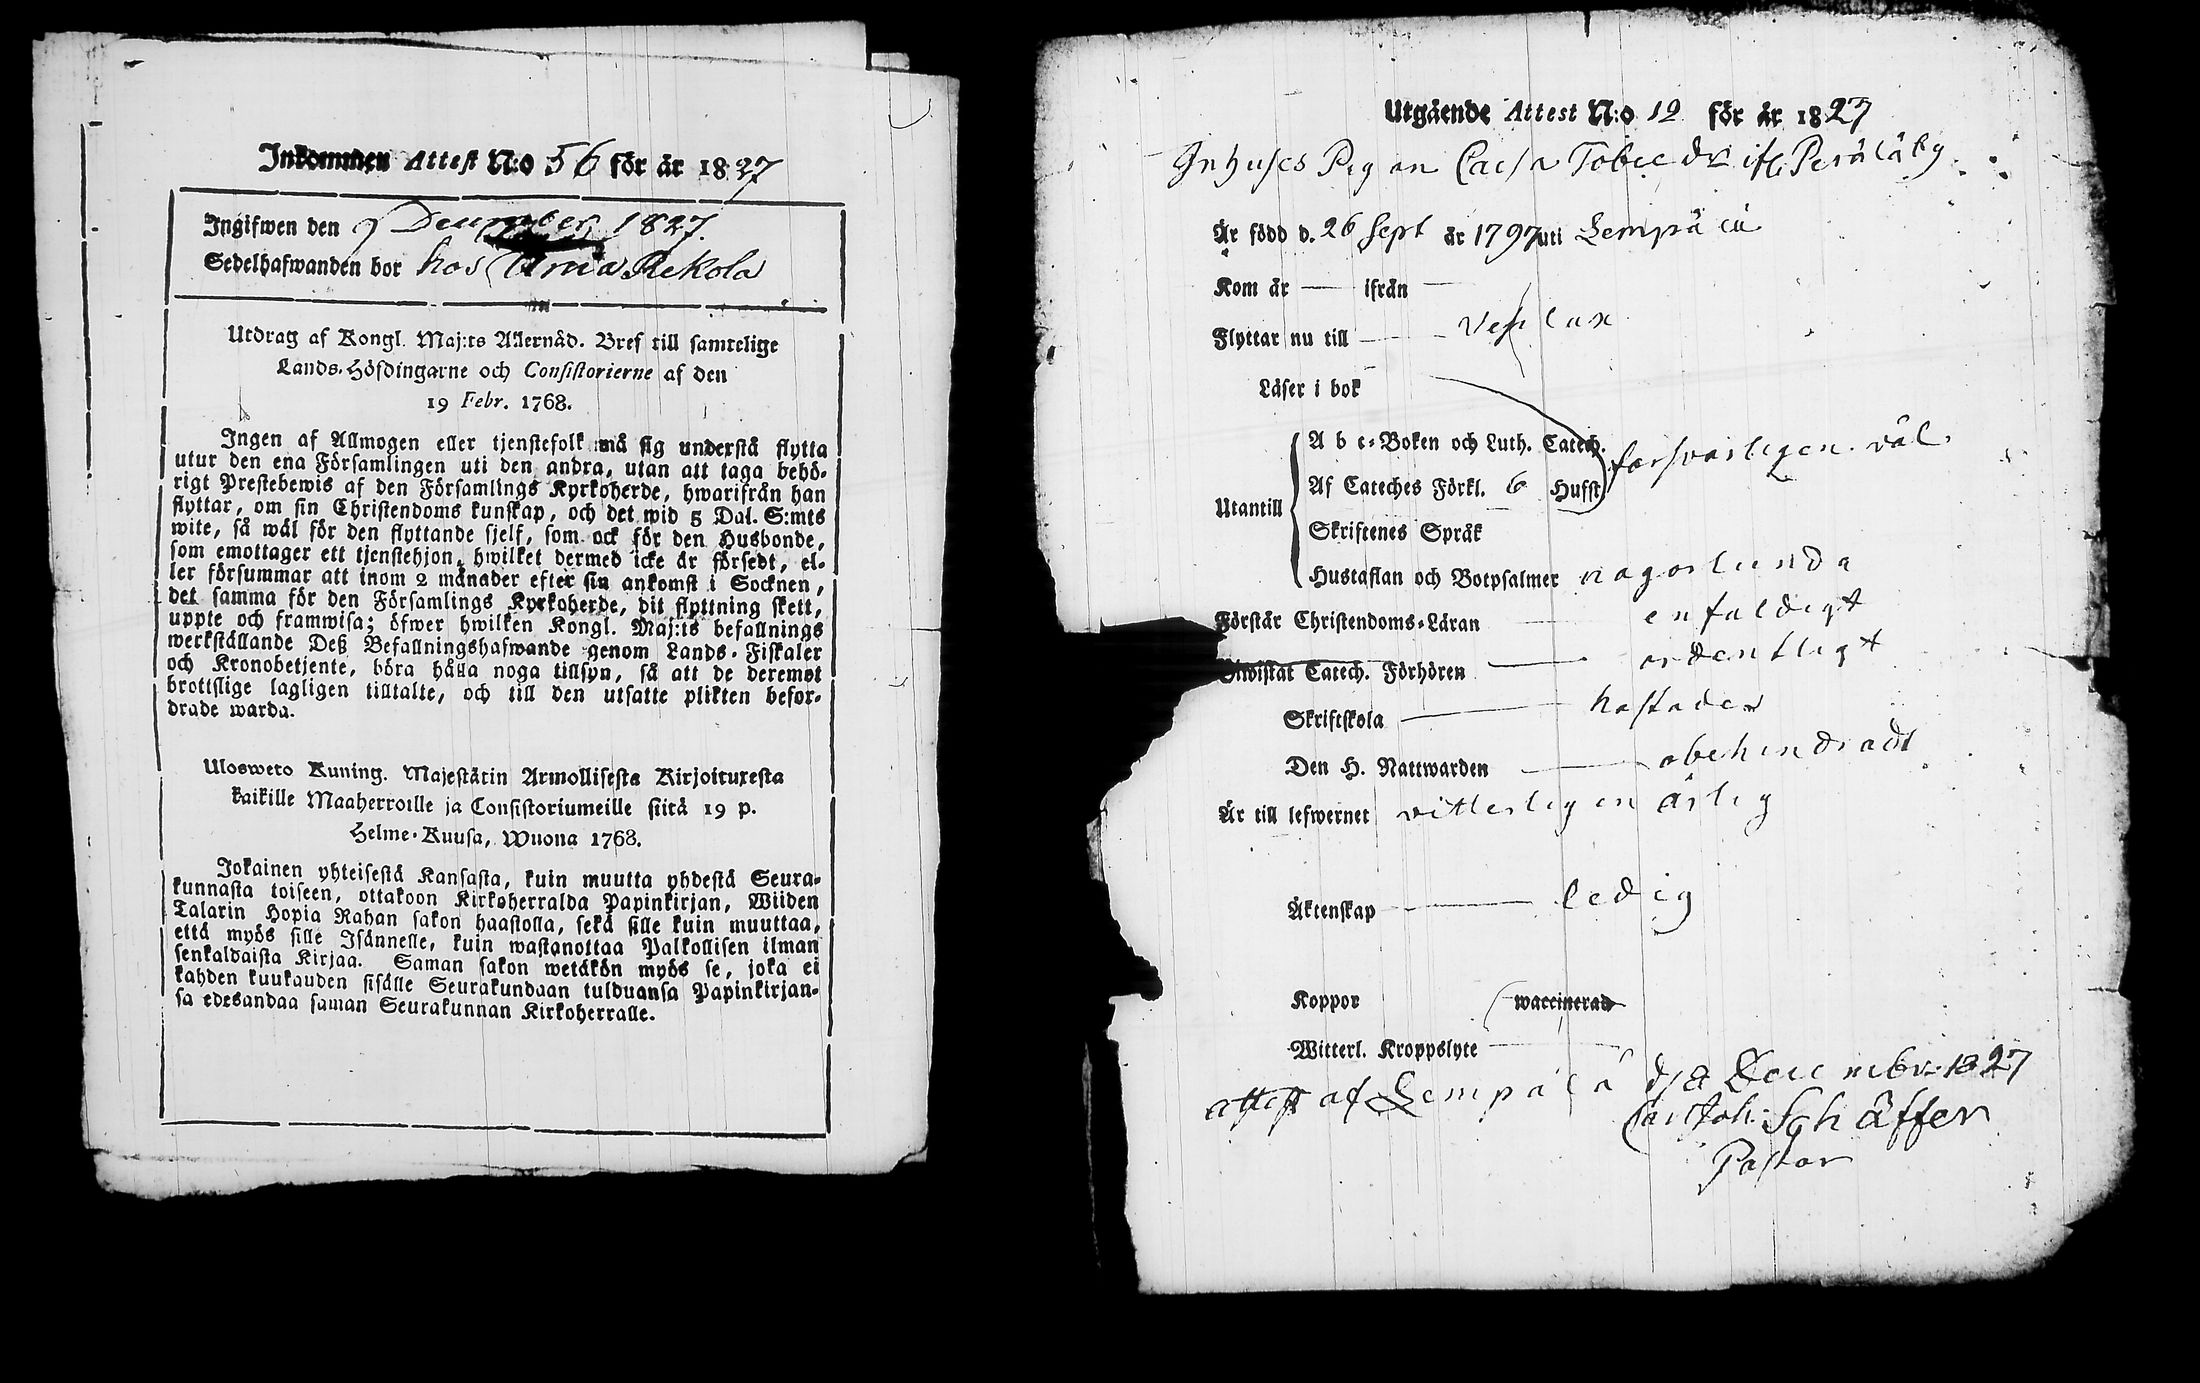 Inkommen Attest N:o 56 för år 1827
Ingifwen den 9 December 1827.
Sedelhafwanden bor hos Rekola
Utdrag af Kongl. Maj:ts Allernåd. Bref till samtelige
Lands-Höfdingarne och Consistorierne af den
19 Febr. 1768.
Ingen af Allmogen eller tjenstefolk må sig understå flytta
utur den ena Församlingen uti den andra, utan att taga behö-
rigt Prestebewis af den Församlings Kyrkoherde, hwarifrån han
flyttar, om sin Christendoms kunskap, och det wid 5 Dal. S:mts
wite, så wäl för den flyttande sjelf, som ock för den Husbonde,
som emottager ett tjenstehjon, hwilket dermed icke är försedt, el-
ler försummar att inom 2 månader efter sin ankomst i Socknen,
det samma för den Församlings Kyrkoherde, dit flyttning skett,
uppte och framwisa; öfwer hwilken Kongl. Maj:ts befallnings
werkställande Deß Befallningshafwande genom Lands-Fiskaler
och Kronobetjente, böra hålla noga tillsyn, så att de deremot
brottslige lagligen tilltalte, och till den utsatte plikten befor-
drade warda.
Ulosweto Kuning. Majestätin Armollisesta Kirjoituxesta
kaikille Maaherroille ja Consistoriumeille siitä 19 p.
Helme-Kuusa, Wuona 1768.
Jokainen yhteisestä Kansasta, kuin muutta yhdestä Seura-
kunnasta toiseen, ottakoon Kirkoherralda Papinkirjan, Wiiden
Talarin Hopia Rahan sakon haastolla, sekä sille kuin muuttaa,
että myös sille Isännelle, kuin wastanottaa Palkollisen ilman
senkaldaista Kirjaa. Saman sakon wetäkön myös se, joka ei
kahden kuukauden sisälle Seurakundaan tulduansa Papinkirjan-
sa edesandaa saman Seurakunnan Kirkoherralle.
Utgående Attest N:o 12 för år 1827
Inhuses Pigan Caisa Tobie dr ifr Peräläby
Är född d. 26 Sept år 1797 uti Lempälä
Kom år — ifrån —
Flyttar nu till — Vesilax
Läser i bok
A b c-Boken och Luth. Catech.
försvarligen väl
Af Cateches Förkl. 6 Hufst
Utantill
Skriftenes Språk
Hustaflan och Botpsalmer någorlunda
Förstår Christendoms-Läran — enfaldigt
Biwistat Catech. Förhören — ordentligt
Skriftskola —
Den H. Nattwarden — obehindradt
Är till lefwernet vitterligen ärlig
Äktenskap — ledig
Koppor waccinerad
Witterl. Kroppslyte —
attest af Lempälä d 8 Decembr 1827
Joh: Schäffer
Pastor